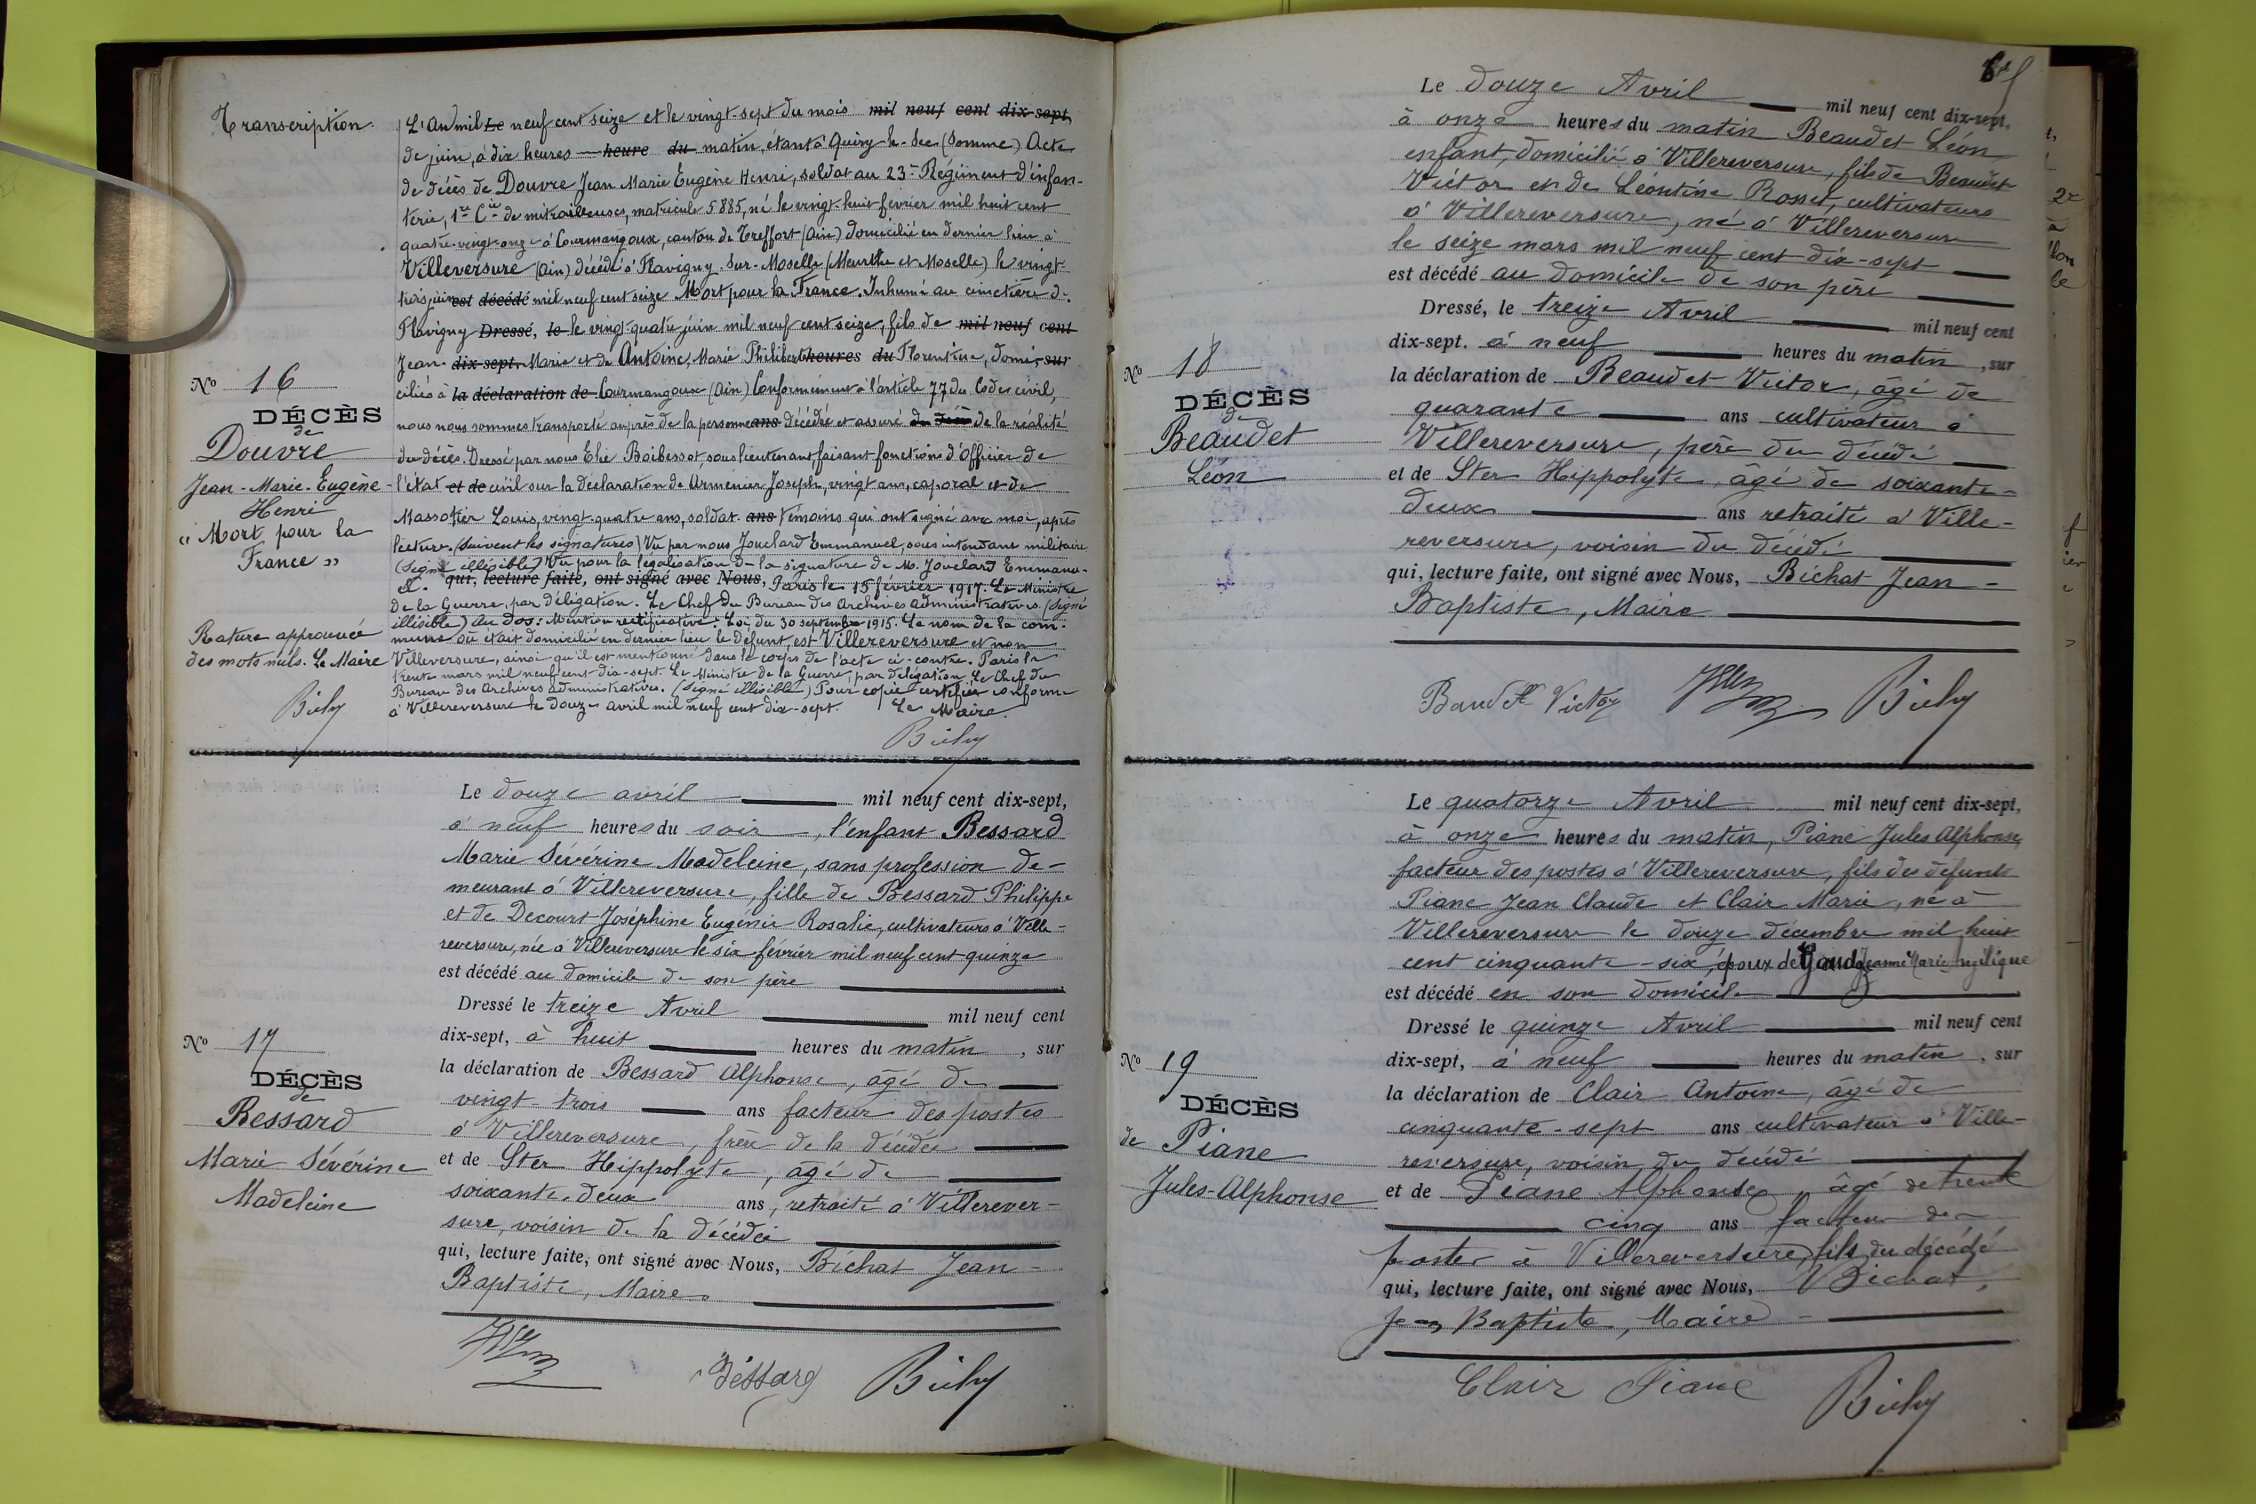 Transcription.
L'An mil Le neuf cent seize et le vingt-sept du mois mil neuf cent dix-sept,
de juin, à dix heures heure du matin, étant à Quiry-le-Sec (Somme) Acte
de décès de Douvre Jean Marie Eugène Henri, soldat au 23e Régiment d'infan-
terie, 1re Cie de mitrailleuses, matricule 5885, né le vingt-huit février mil huit cent
quatre-vingt-onze à Courmangoux, canton de Treffort (Ain) domicilié en dernier lieu à
Villeversure (Ain) décédé à Flavigny-sur-Moselle (Meurthe et Moselle) le vingt-
trois juin est décédé mil neuf cent seize Mort pour la France. Inhumé au cimetière de
Flavigny Dressé, le le vingt-quatre juin mil neuf cent seize, fils de mil neuf cent
Jean dix-sept, Marie et de Antoine, Marie Philibert heures du Florentine, domi- sur
ciliés à la déclaration de Courmangoux (Ain) Conformément à l'article 77 du Code civil,
nous nous sommes transporté auprès de la personne ans décédée et assuré de la réalité
du décès. Dressé par nous Elie Boibessot, sous lieutenant, faisant fonctions d'Officier de
l'état et de civil sur la déclaration de Armenier Joseph, vingt ans, caporal et de
Massotier Louis, vingt-quatre ans, soldat. ans témoins qui ont signé avec moi, après
lecture. (Suivent les signatures) Vu par nous Jouclard Emmanuel, sous intendant militaire
(Signé illisible) Vu pour la légalisation de la signature de M. Jouclard Emmanu-
el. qui, lecture faite, ont signé avec Nous, Paris le 15 février 1917. Le Ministre
de la Guerre, par délégation. Le Chef du Bureau des Archives Administratives. (Signé
illisible) Au dos: Mention rectificative: Loi du 30 septembre 1915. Le nom de la com-
mune où était domicilié en dernier lieu le défunt, est Villereversure et non
Villeversure, ainsi qu'il est mentionné dans le corps de l'acte ci-contre. Paris le
trente mars mil neuf cent dix-sept. Le Ministre de la Guerre, par délégation. Le Chef du
Bureau des Archives administratives. (Signé illisible) Pour copie certifiée conforme
à Villereversure le douze avril mil neuf cent dix-sept. Le Maire.
No 16
DÉCÈS
de
Douvre
Jean-Marie-Eugène
Henri
« Mort pour la
France »
Rature approuvée
des mots nuls. Le Maire
No 17
DÉCÈS
de
Bessard
Marie Sévérine
Madeleine
Le douze avril mil neuf cent dix-sept,
à neuf heures du soir, l'enfant Bessard
Marie Sévérine Madeleine, sans profession de-
meurant à Villereversure, fille de Bessard Philippe
et de Decourt Joséphine Eugénie Rosalie, cultivateurs à Ville-
reversure, née à Villereversure le six février mil neuf cent quinze
est décédé au domicile de son père
Dressé le treize Avril mil neuf cent
dix-sept, à huit heures du matin, sur
la déclaration de Bessard Alphonse, âgé de
vingt-trois ans facteur des postes
à Villereversure, frère de la décédée
et de Ster Hippolyte, âgé de
soixante-deux ans, retraité à Villerever-
sure, voisin de la décédée
qui, lecture faite, ont signé avec Nous, Bichat Jean-
Baptiste, Maire.
Bessard
Le douze Avril mil neuf cent dix-sept,
à onze heures du matin Beaudet Léon
enfant, domicilié à Villereversure, fils de Beaudet
Victor et de Léontine Rosset, cultivateurs
à Villereversure, né à Villereversure
le seize mars mil neuf cent dix-sept
est décédé au domicile de son père
Dressé, le treize Avril mil neuf cent
dix-sept. à neuf heures du matin, sur
la déclaration de Beaudet Victor, âgé de
quarante ans cultivateur à
Villereversure, père du décédé
et de Ster Hippolyte, âgé de soixante-
deux ans retraité à Ville-
reversure, voisin du décédé
qui, lecture faite, ont signé avec Nous, Bichat Jean-
Baptiste, Maire
Victor
No 18
DÉCÈS
de
Beaudet
Léon
Le quatorze Avril mil neuf cent dix-sept,
à onze heures du matin, Piane Jules Alphonse,
facteur des postes à Villereversure, fils des défunts
Piane Jean Claude et Clair Marie, né à
Villereversure le douze décembre mil huit
cent cinquante-six, époux de Jeanne Marie
est décédé en son domicile
Dressé le quinze Avril mil neuf cent
dix-sept, à neuf heures du matin, sur
la déclaration de Clair Antoine, âgé de
cinquante-sept ans cultivateur à Ville-
reversure, voisin du décédé
et de Piane Alphonse, âgé de trente
cinq ans facteur des
postes à Villereversure, fils du décédé
qui, lecture faite, ont signé avec Nous, Bichat,
Jean Baptiste, Maire
Clair Piane
No 19
DÉCÈS
de Piane
Jules-Alphonse